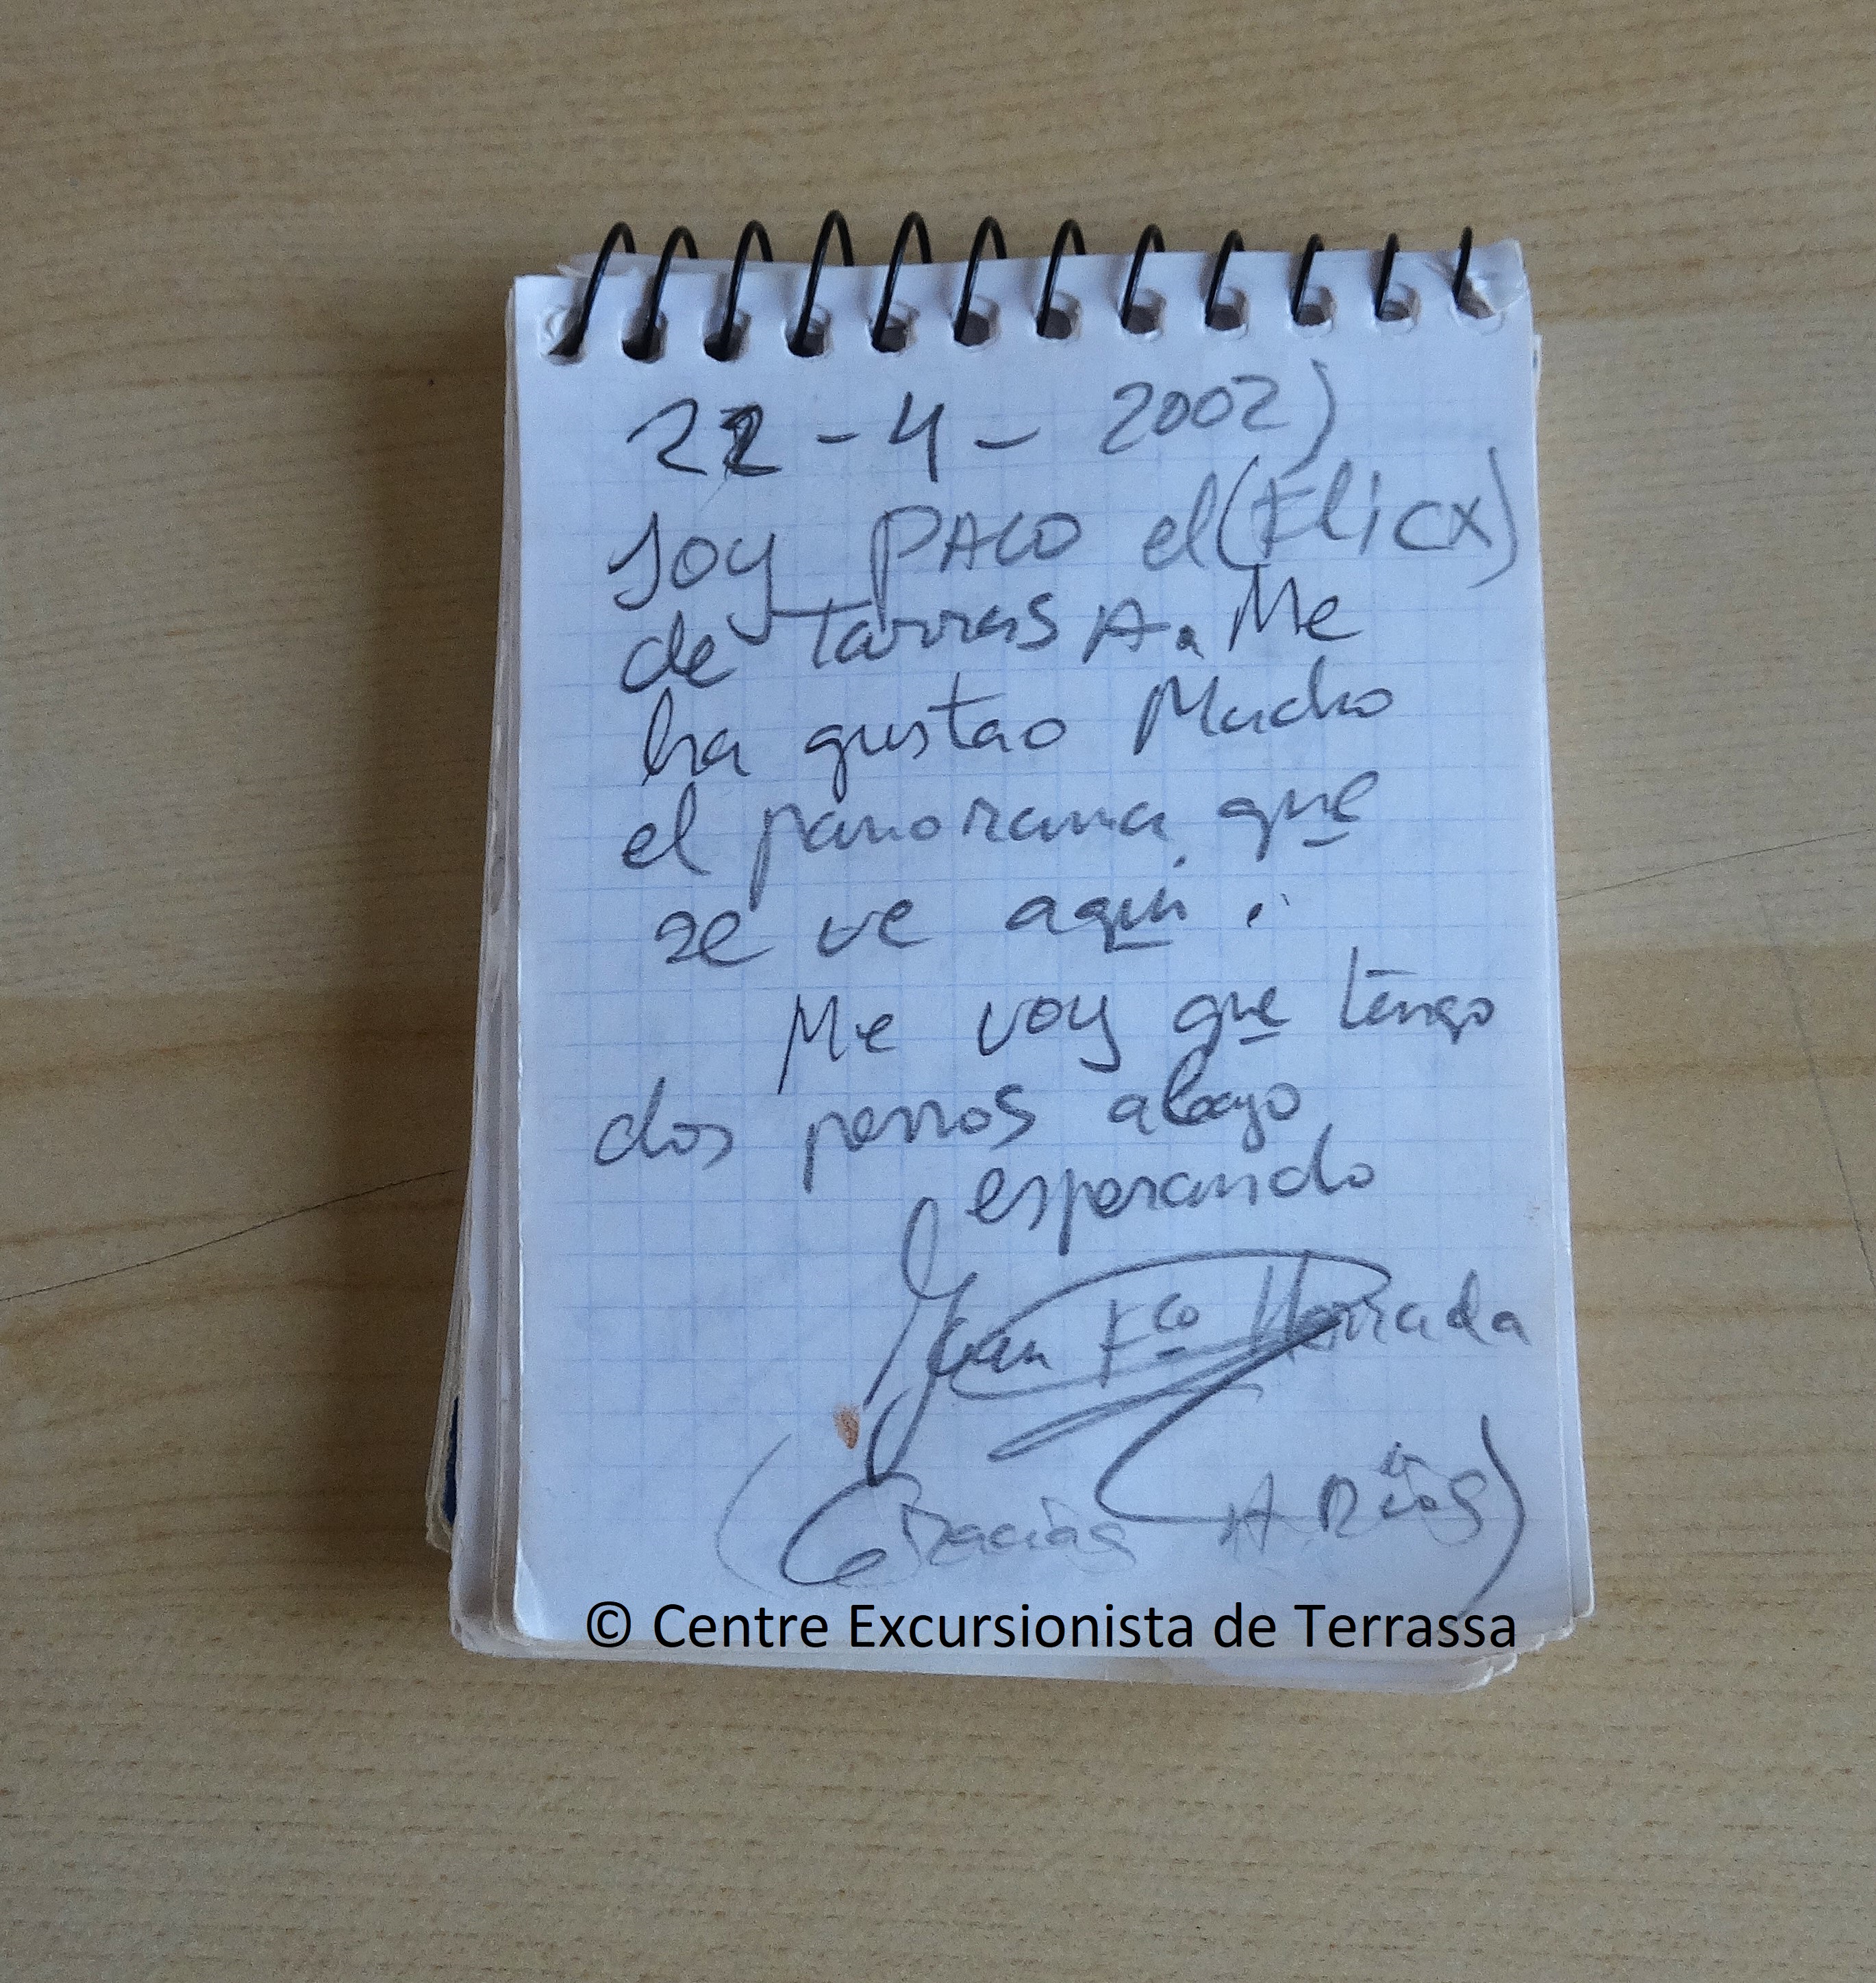 22-4-2002)
Soy PACO el (Flicx)
de TarrasA. Me
ha gustao Mucho
el panorama que
se ve aqui.
Me voy que tengo
dos perros abajo
esperando
Juan Fco Herrada
(Gracias A Dios)
© Centre Excursionista de Terrassa